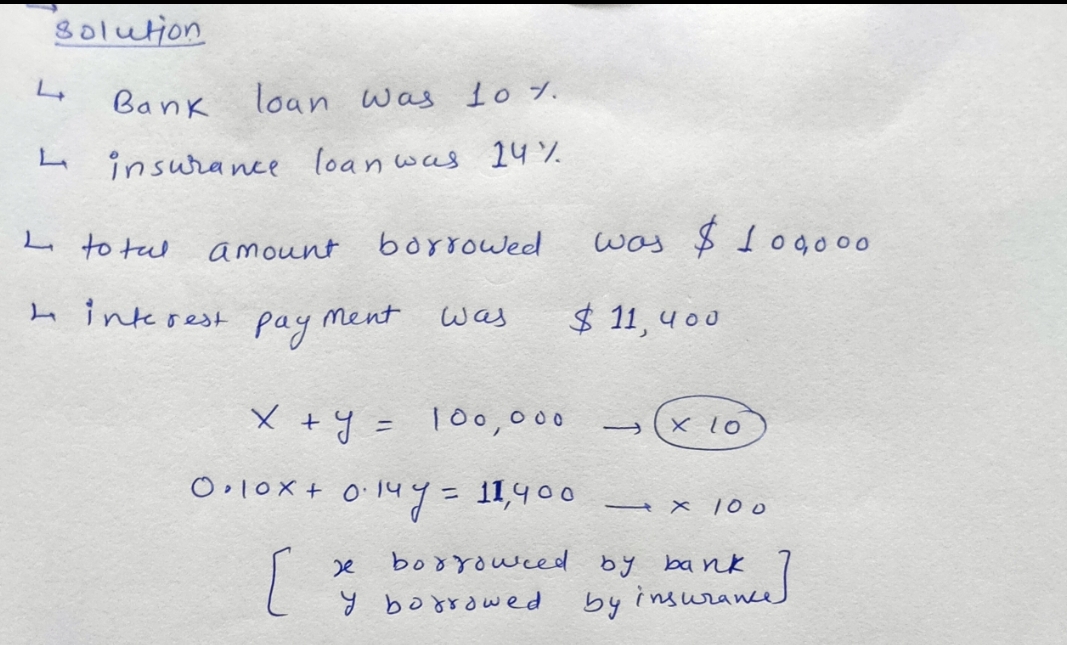 solution
↳ Bank loan was 10%.
↳ insurance loan was 14%.
↳ total amount borrowed was $ 100,000
↳ interest payment was $ 11,400
x + y = 100,000 → × 10
0.10x + 0.14y = 11,400 → × 100
[ x borrowced by bank
y borrowed by insurance ]